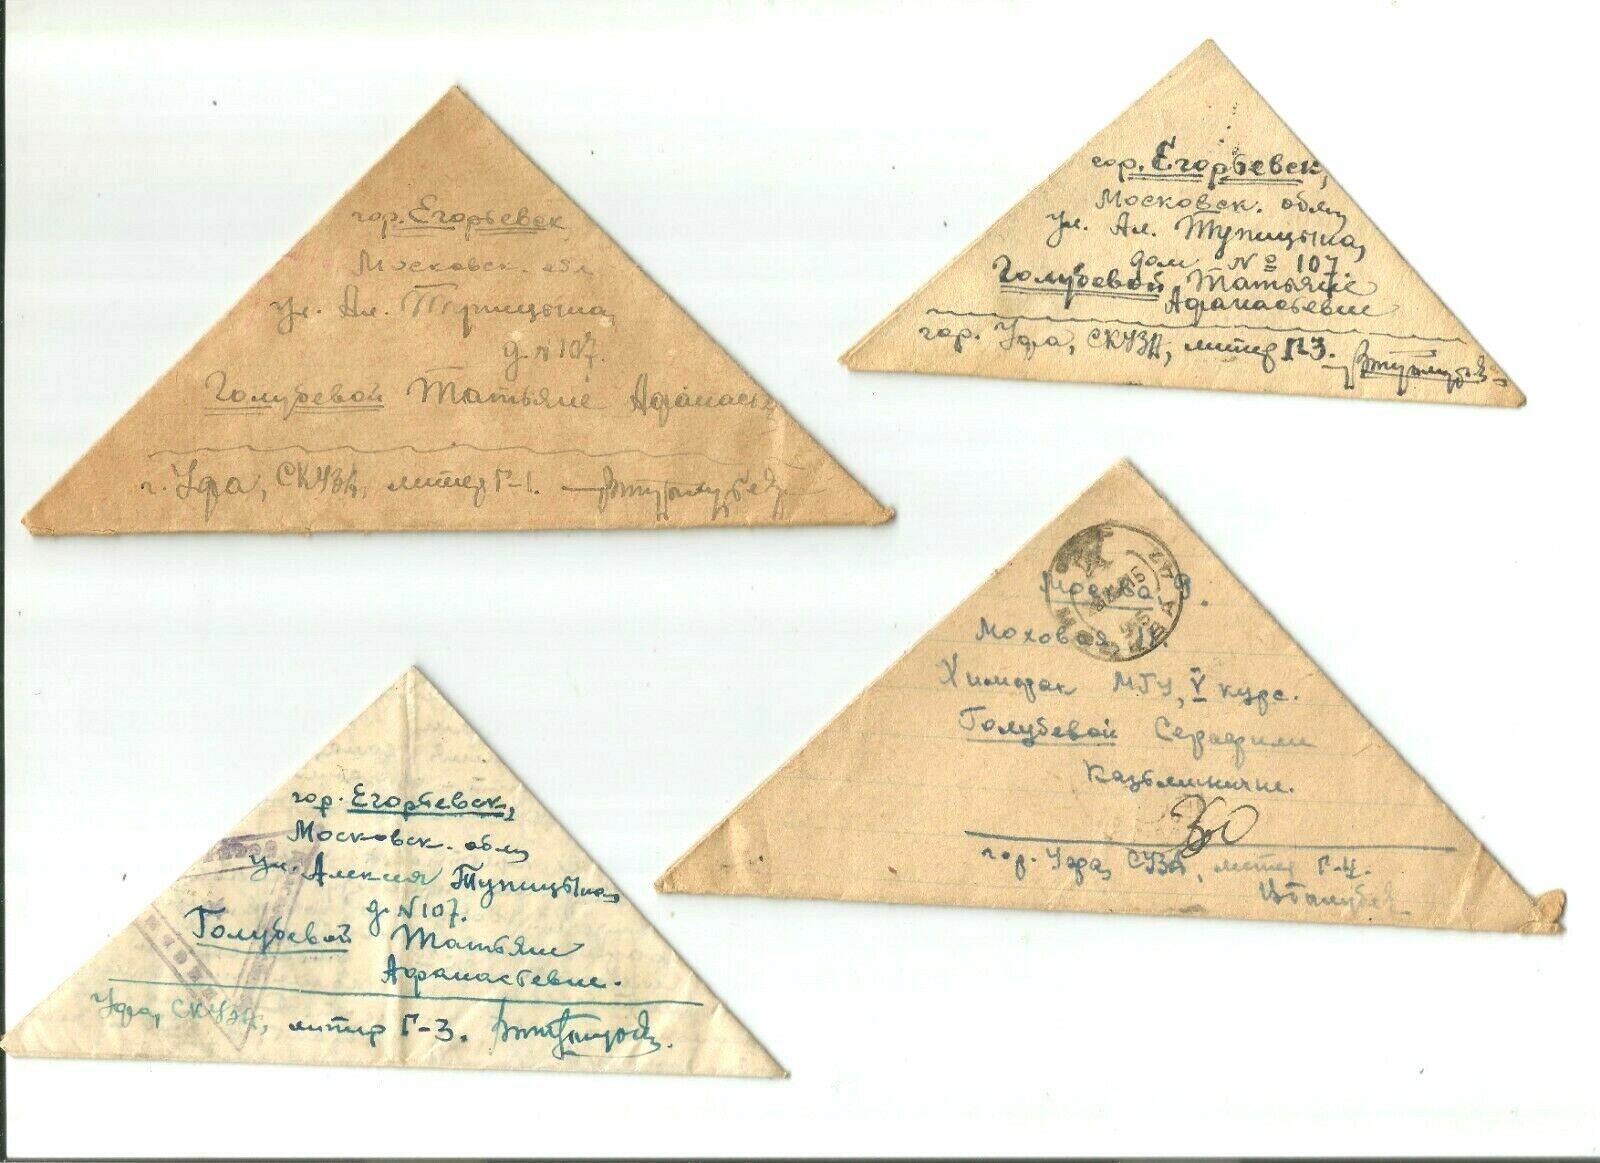 гор. Егорьевск
Московск. обл.
ул. Ал. Тупицына,
д. N 107.
Голубевой Татьяне Афанась
г. Уфа, СКУЗА, литер Г-1.
гор. Егорьевск,
Московск. обл.,
ул. Ал. Тупицына,
дом № 107.
Голубевой Татьяне
Афанасьевне
гор. Уфа, СКУЗА, литер Г-3.
гор. Егорьевск,
Московск. обл.,
ул. Алексея Тупицына,
д. N 107.
Голубевой Татьяне
Афанасьевне.
Уфа, СКУЗА, литер Г-3.
Москва, 9.
Моховая 11.
Химфак МГУ, V курс.
Голубевой Серафиме
МОСКВА
гор. Уфа, СУЗА, литер